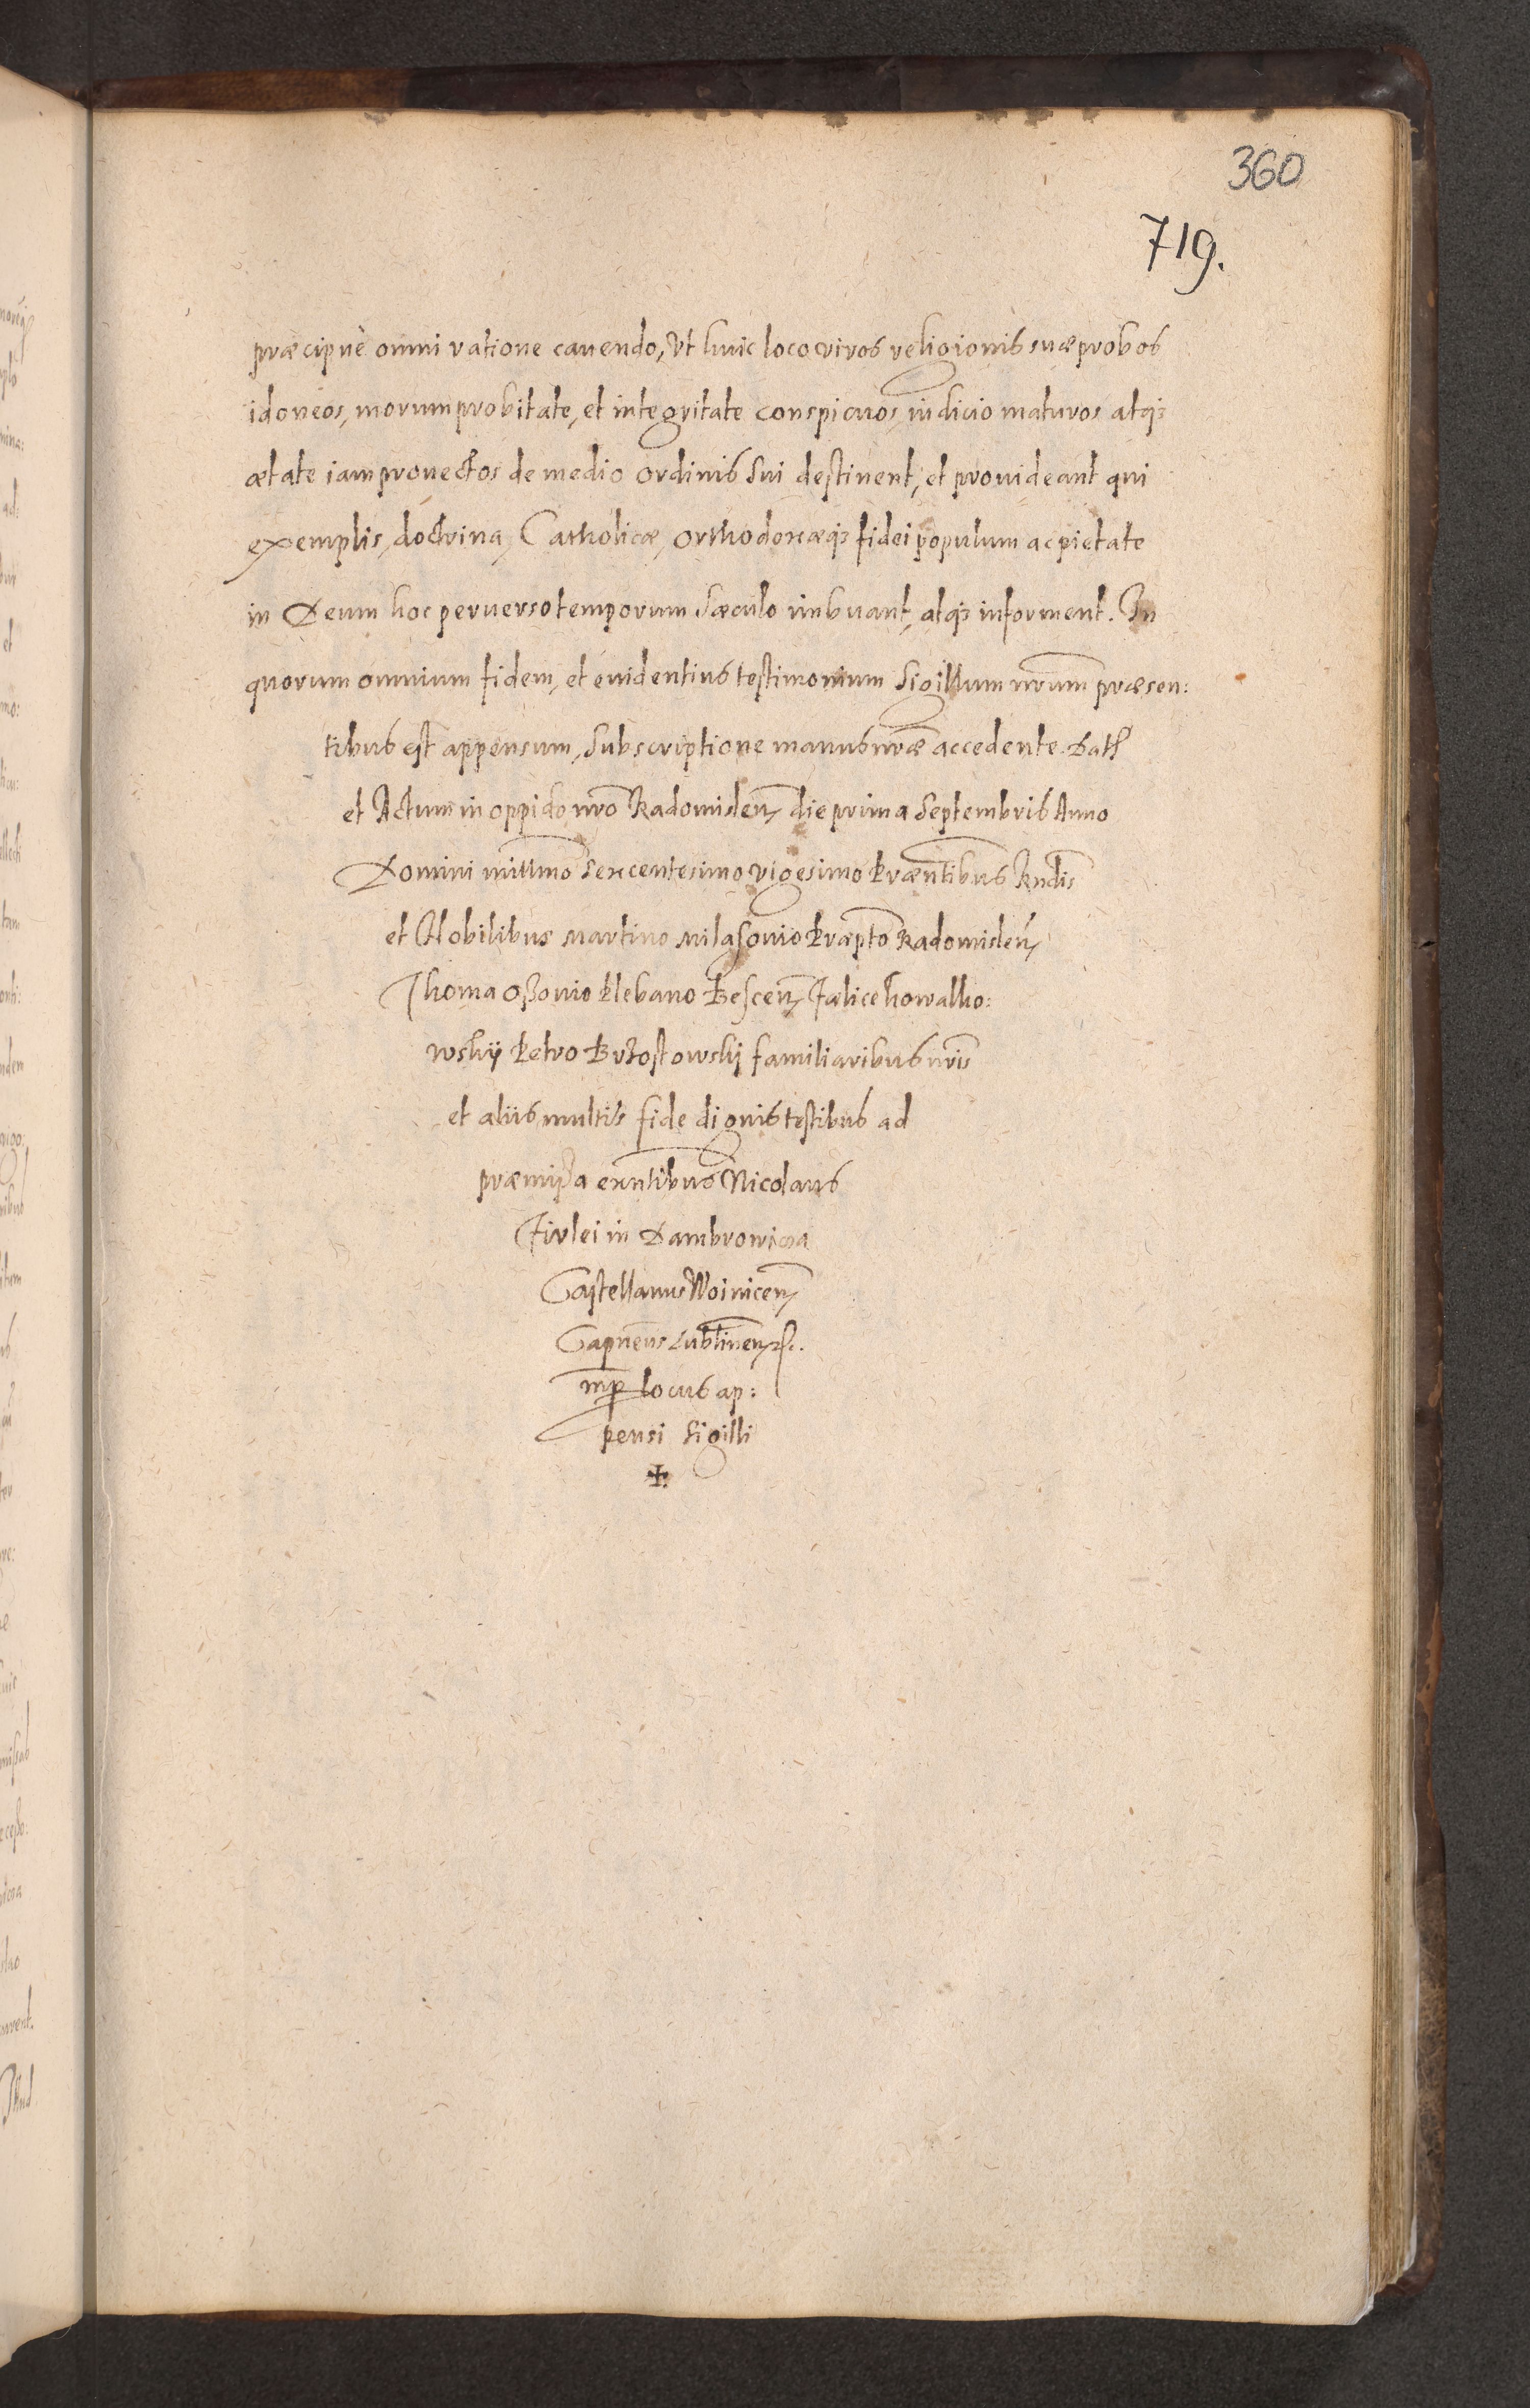 360
719.
præcipuè omni ratione cauendo, Vt huic loco viros religionis suæ probos
idoneos, morum probitate, et integritate conspicuos, iudicio maturos atq3
ætate iam prouectos de medio ordinis sui destinent, et prouideant qui
exemplis, doctrina, Catholicæ, orthodoxæq3 fidei populum ac pietate
in Deum hoc peruerso temporum sæculo imbuant, atq3 informent. In
quorum omnium fidem, et euidentius testimonium Sigillum nrum præsen:
tibus est appensum, Subscriptione manus nræ accedente. Dat
et Actum in oppido nro Radomislen die prima Septembris Anno
Domini millmo Sexcentesimo vigesimo Præntibus Rndis
et Nobilibus Martino Milasouio Præpto Radomislen
Thoma Oßouio Plebano Bescen Fælice Kowalko:
wskÿ Petro Brzostowskÿ familiaribus nris
et aliis multis fide dignis testibus ad
præmißa exntibus Nicolaus
Firlei in Dambrowica
Castellanus Woinicen
Capneus Lublinen
mp locus ap:
pensi Sigilli
✠